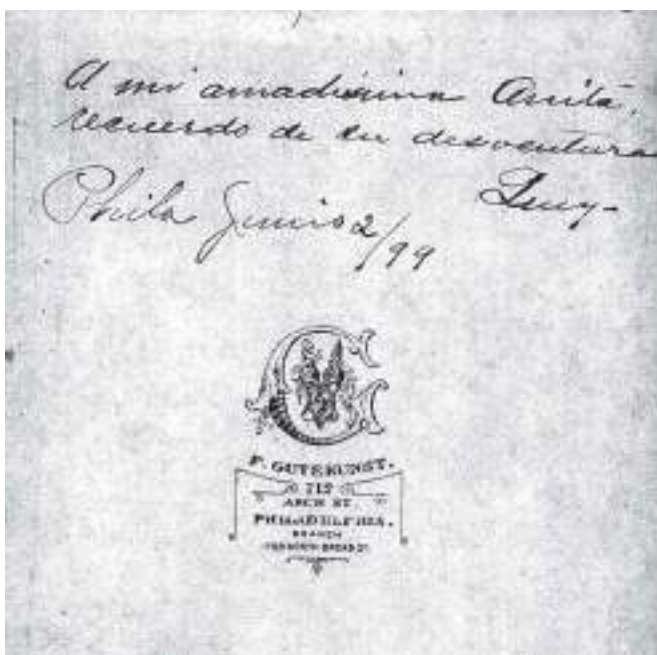 A mi amadísima Anita,
recuerdo de su desventura
Phila Junio 2/99
F. GUTEKUNST.
712
ARCH ST.
PHILADELPHIA.
BRANCH
BROAD ST.